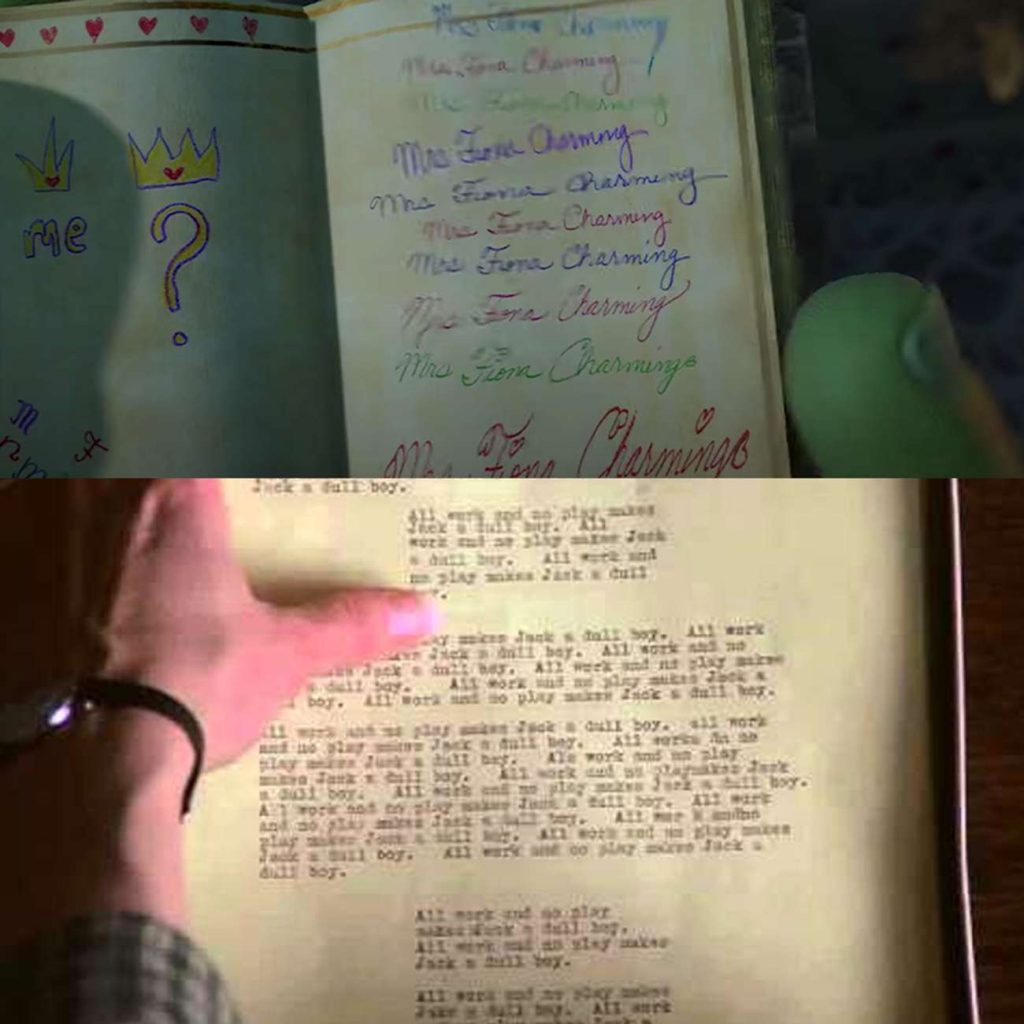 me
?
Mrs Fiona Charming
Mrs. Fiona Charming
Mrs Fiona Charming
Mrs Fiona Charming
Mrs Fiona Charming
Mrs Fiona Charming
Mrs Fiona Charming
Mrs Fiona Charming
Mrs Fiona Charming
Mrs Fiona Charming
Jack a dull boy.
All work and no play makes
Jack a dull boy. All
work and no play makes Jack
a dull boy. All work and
no play makes Jack a dull
makes Jack a dull boy. All work
Jack a dull boy. All work and no
Jack a dull boy. All work and no play makes
a dull boy. All work and no play makes Jack a
boy. All work and no play makes Jack a dull boy.
All work and no play makes Jack a dull boy. all work
and no play makes Jack a dull boy. All works
play makes Jack a dull boy. All work and no play
makes Jack a dull boy. All work and no playmakes Jack
a dull boy. All work and no play makes Jack a dull boy.
A l work and no play makes Jack a dull boy. All work
and no play makes Jack a dull boy.
play makes Jack a dull boy. All work and no play makes
Jack a dull boy. All work and no play makes Jack a
dull boy.
All work and no play
makes Jack a dull boy.
All work and no play makes
Jack a dull boy.
All work and no play makes
Jack a dull boy. All work